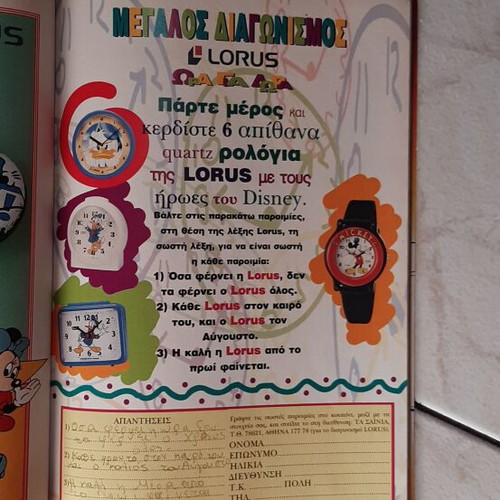 ΜΕΓΑΛΟΣ ΔΙΑΓΩΝΙΣΜΟΣ
LORUS
ΩΡΑ ΓΙΑ ΔΩΡΑ
Πάρτε μέρος και
κερδίστε 6 απίθανα
quartz ρολόγια
της LORUS με τους
ήρωες του Disney.
Βάλτε στις παρακάτω παροιμίες,
στη θέση της λέξης Lorus, τη
σωστή λέξη, για να είναι σωστή
η κάθε παροιμία:
1) Όσα φέρνει η Lorus, δεν
τα φέρνει ο Lorus όλος.
2) Κάθε Lorus στον καιρό
του, και ο Lorus τον
Αύγουστο.
3) Η καλή η Lorus από το
πρωί φαίνεται.
ΑΠΑΝΤΗΣΕΙΣ
1) Όσα φέρνει η ώρα δεν
τα φέρνει ο χρόνος
2)
3) Η καλή η Μέρα από
το
Γράψτε τις σωστές παροιμίες στο κουπόνι, μαζί με τα
στοιχεία σας, και στείλτε το στη διεύθυνση: ΤΑ ΣΑΪΝΙΑ,
Τ.Θ. 78621, ΑΘΗΝΑ 177 78 (για το διαγωνισμό LORUS).
ΟΝΟΜΑ
ΕΠΩΝΥΜΟ
ΗΛΙΚΙΑ
ΔΙΕΥΘΥΝΣΗ
Τ.Κ. ΠΟΛΗ
ΤΗΛ.
MICKEY
US